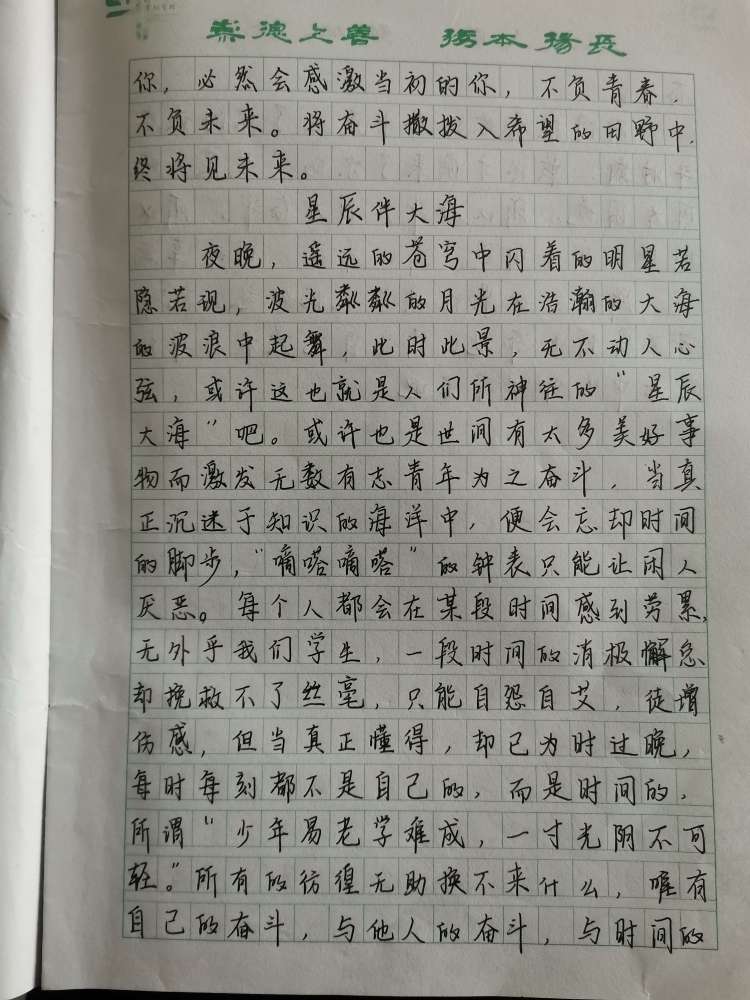 崇德上善 務本揚長
你，必然会感激当初的你，不负青春，
不负未来。将奋斗撒拨入希望的田野中，
终将见未来。
星辰伴大海
夜晚，遥远的苍穹中闪着的明星若
隐若现，波光粼粼的月光在浩瀚的大海
的波浪中起舞，此时此景，无不动人心
弦，或许这也就是人们所神往的“星辰
大海”吧。或许也是世间有太多美好事
物而激发无数有志青年为之奋斗，当真
正沉迷于知识的海洋中，便会忘却时间
的脚步，“嘀嗒嘀嗒”的钟表只能让闲人
厌恶。每个人都会在某段时间感到劳累，
无外乎我们学生，一段时间的消极懈怠
却挽救不了丝毫，只能自怨自艾，徒增
伤感，但当真正懂得，却已为时过晚，
每时每刻都不是自己的，而是时间的，
所谓“少年易老学难成，一寸光阴不可
轻。”所有的彷徨无助换不来什么，唯有
自己的奋斗，与他人的奋斗，与时间的